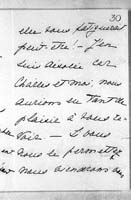 30
vous fatiguerait
peut être! — J'en
suis désolée car
Charles et moi, nous
aurions eu tant de
plaisir à vous re-
voir — Si vous
nous le permettez
nous viendrons